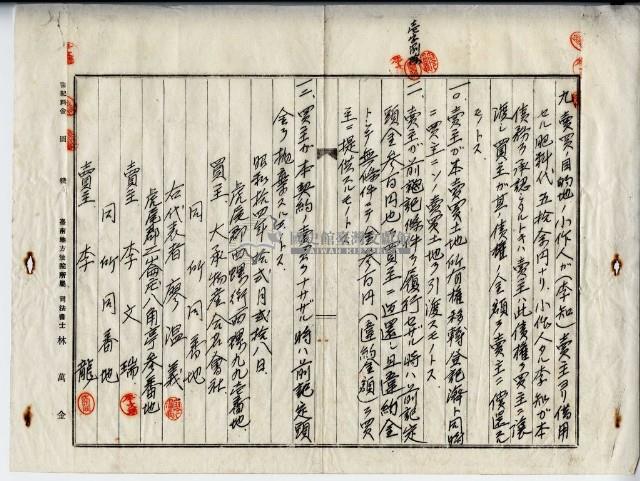 壱字削除
九、賣買ノ目的地ノ小作人ガ(李知)賣主ヨリ借用
セル肥料代五拾余円ナリ、小作人タル李知ガ本
債務ヲ承認シタルトキハ賣主ハ此債權ヲ買主ニ讓
渡シ買主ガ其ノ債權ノ金額ヲ賣主ニ償還ス
モノトス
一〇、賣主ガ本賣買土地所有權移轉登記濟ト同時
ニ買主ニソノ賣買土地ヲ引渡スモノトス
一一、賣主ガ前記條件ヲ履行セザル時ハ前記定
頭金参百円也ヲ買主ニ返還シ且違約金
トシテ無條件ニテ金参百円(違約金額)ヲ買
主ニ提供スルモノトス
一二、買主ガ本契約ノ賣買ヲナサザル時ハ前記定頭
金ヲ抛棄スルモノトス
昭和拾四年拾弐月弐拾八日
虎尾郡西螺街西螺九九壱番地
買主 大承物産合名會社
同所同番地
右代表者 廖温義
虎尾郡崙背庄八角亭参番地
賣主 李文瑞
同所同番地
賣主 李龍
臺南地方法院所屬 司法書士 林萬全
國史館臺灣文獻館
TAIWAN HISTORICA